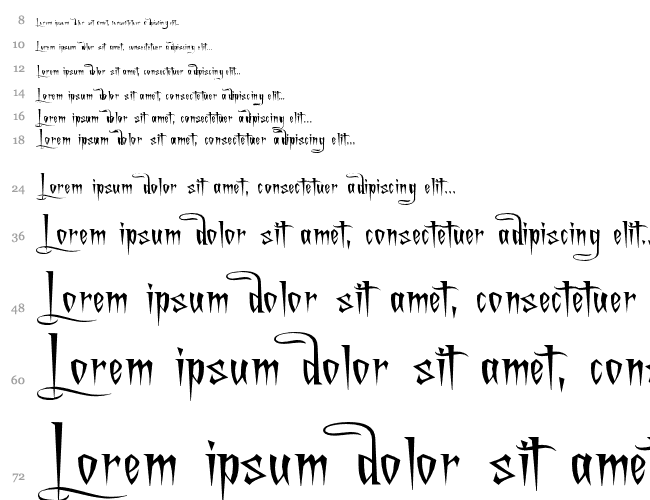 8 Lorem ipsum dolor sit amet, consectetuer adipiscing elit...
10 Lorem ipsum dolor sit amet, consectetuer adipiscing elit...
12 Lorem ipsum dolor sit amet, consectetuer adipiscing elit...
14 Lorem ipsum dolor sit amet, consectetuer adipiscing elit...
16 Lorem ipsum dolor sit amet, consectetuer adipiscing elit...
18 Lorem ipsum dolor sit amet, consectetuer adipiscing elit...
24 Lorem ipsum dolor sit amet, consectetuer adipiscing elit...
36 Lorem ipsum dolor sit amet, consectetuer adipiscing elit..
48 Lorem ipsum dolor sit amet, consectetuer
60 Lorem ipsum dolor sit amet, con
72 Lorem ipsum dolor sit ame